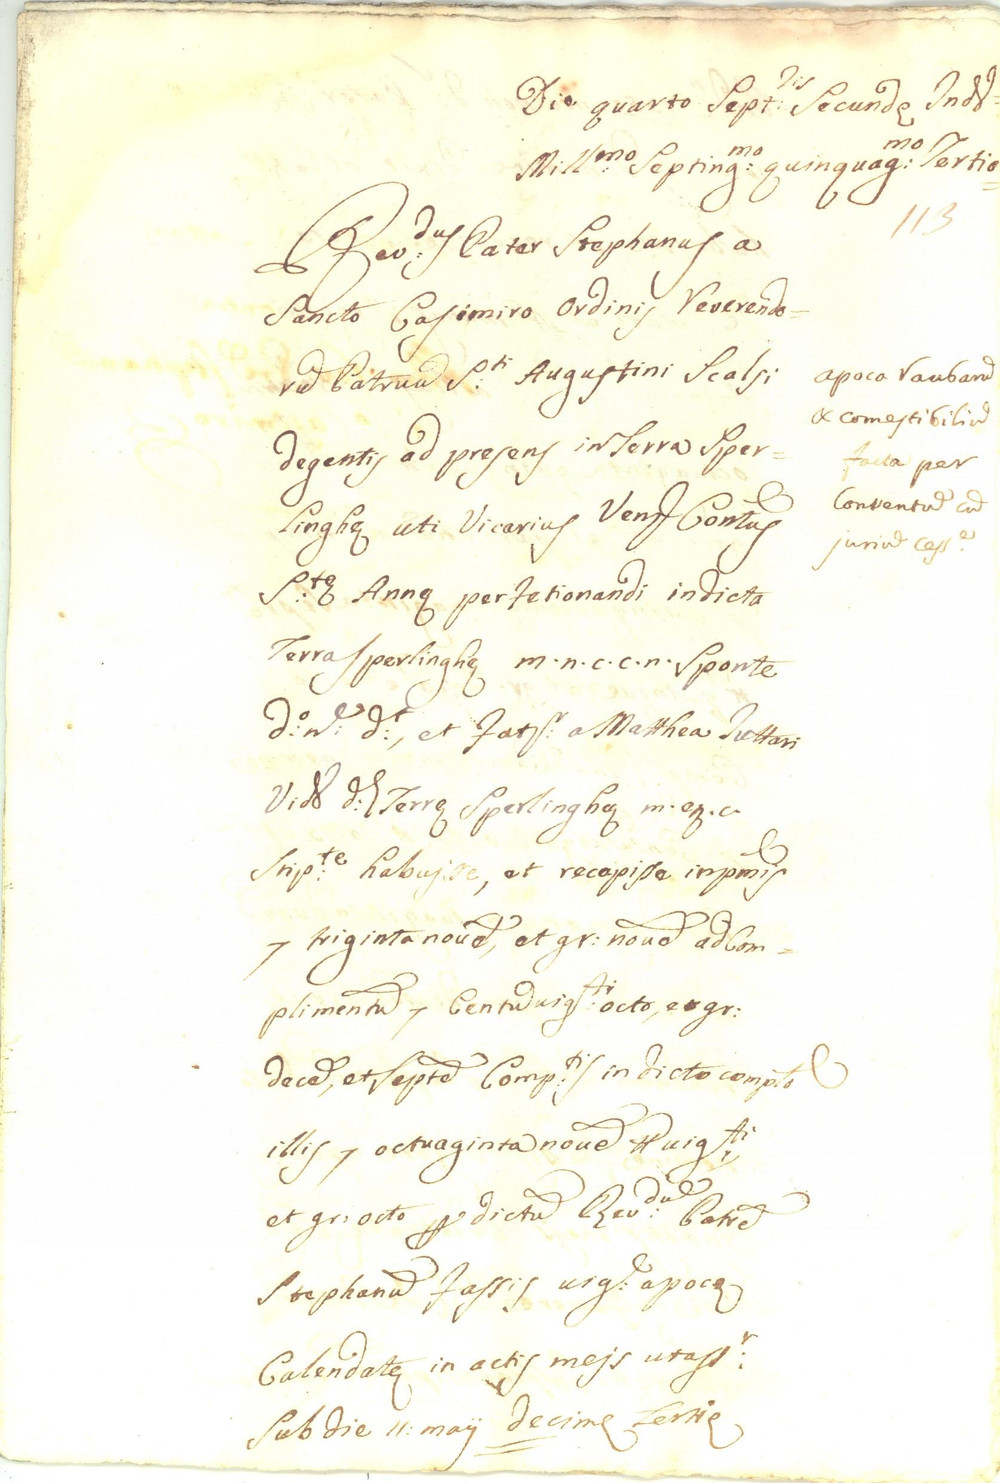 Die quarto Sept:ris Secundę Ind:
Mill:mo Septing:mo quinquag:mo Tertio
113
Rev:dus Pater Stephanus a
Sancto Casimiro Ordinis Reverendo=
rũ Patruũ S:ti Augustini Scalsi
degentis ad presens in Terra Sper=
linghę uti Vicarius Ven: Contus
S:tę Annę perfetionandi in dicta
Terra Sperlinghę m.n.c.c.n. Sponte
D:o n: d:t, et fats:r a Matthea
Vid: d: Terrę Sperlinghę m.eq.c.
Stip:te habuisse, et recepisse inpmis
7 triginta novẽ, et gr: novẽ ad Com=
plimentũ 7 Centũ uig:ti octo, et gr:
decẽ, et Septẽ Comp:tis in dicto compto
illis 7 octuaginta novẽ uig:ti
et gr: octo p dictũ Rev:dũ Patrẽ
Stephanũ fassis uig: apocę
Calendatę in actis mejs ut ass:r
Sub die 11: maij decimę tertię
apoca
& comestibiliũ
facta per
Conventũ cũ
juriũ cess:e